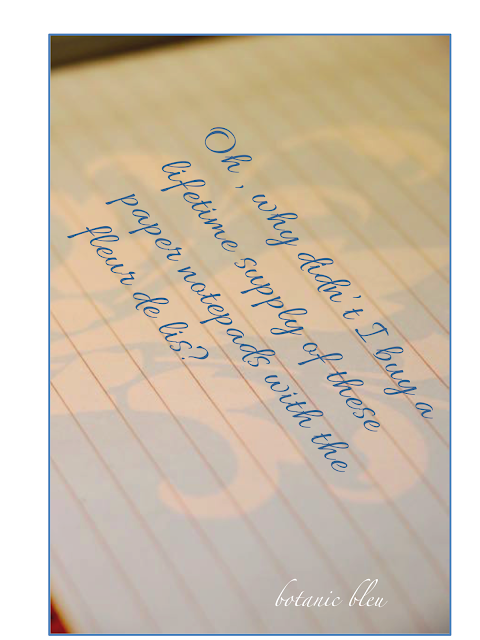 Oh, why didn't I buy a
lifetime supply of these
paper notepads with the
fleur de lis?
botanic bleu